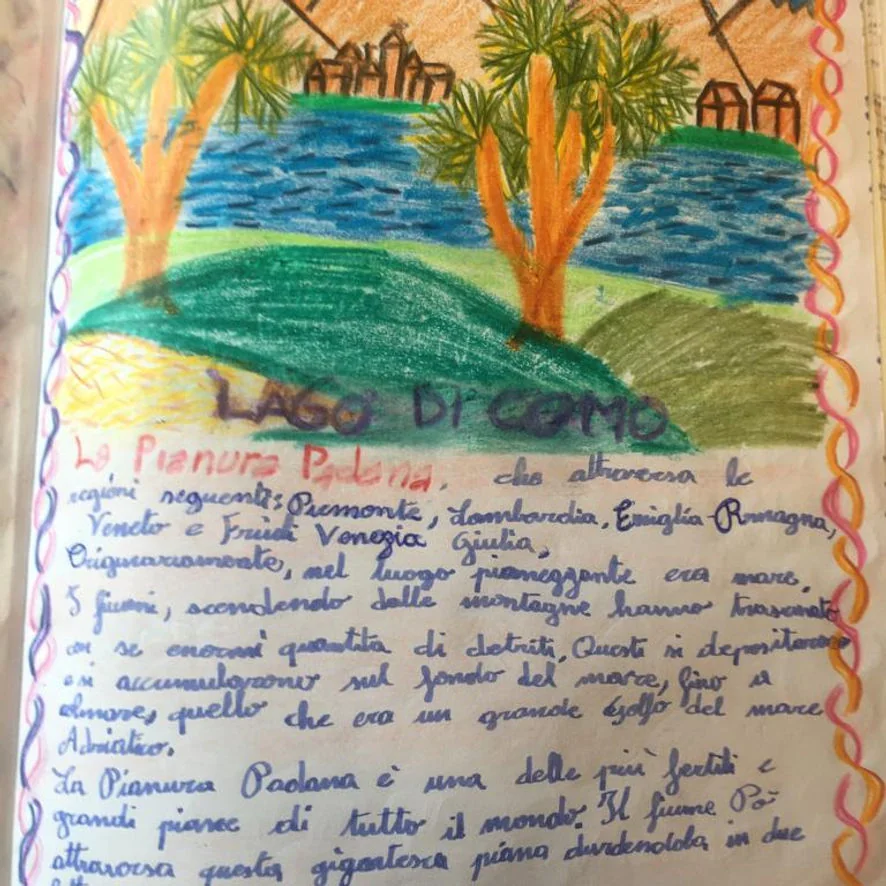 LAGO DI COMO
La Pianura Padana, che attraversa le
regioni seguenti: Piemonte, Lombardia, Emiglia Romagna,
Veneto e Friuli Venezia Giulia,
Originariamente, nel luogo pianeggiante era mare,
I fiumi, scendendo dalle montagne hanno trascinato
con se enormi quantita di detriti, Questi si depositarono
e si accumularono sul fondo del mare, fino a
colmare, quello che era un grande Golfo del mare
Adriatico.
La Pianura Padana è una delle più fertili e
grandi piane di tutto il mondo. Il fiume Pò
attraversa questa gigantesca piana dividendola in due